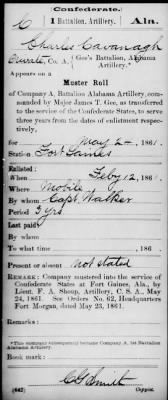 Confederate.
C 1 Battalion, Artillery. Ala.
Charles Cavanagh
Private, Co. A, (Gee's Battalion, Alabama Artillery.*
Appears on a
Muster Roll
of Company A, Battalion Alabama Artillery, com-
manded by Major James T. Gee, as transferred
to the service of the Confederate States, to serve
three years from the dates of enlistment respec-
tively,
for May 24, 1861.
Station Fort Gaines
Enlisted:
When Feby 12, 1861.
Where Mobile
By whom Capt. Walker
Period 3 yrs
Last paid:
By whom
To what time , 186 .
Present or absent not stated
REMARK: Company mustered into the service of
Confederate States at Fort Gaines, Ala., by
Lieut. F. A. Shoup, Artillery, C. S. A., May
24, 1861. See Orders No. 62, Headquarters
Fort Morgan, dated May 23, 1861.
Remarks:
*This company subsequently became Company A, 1st Battalion
Alabama Artillery.
Book mark:
(642) Copyist.